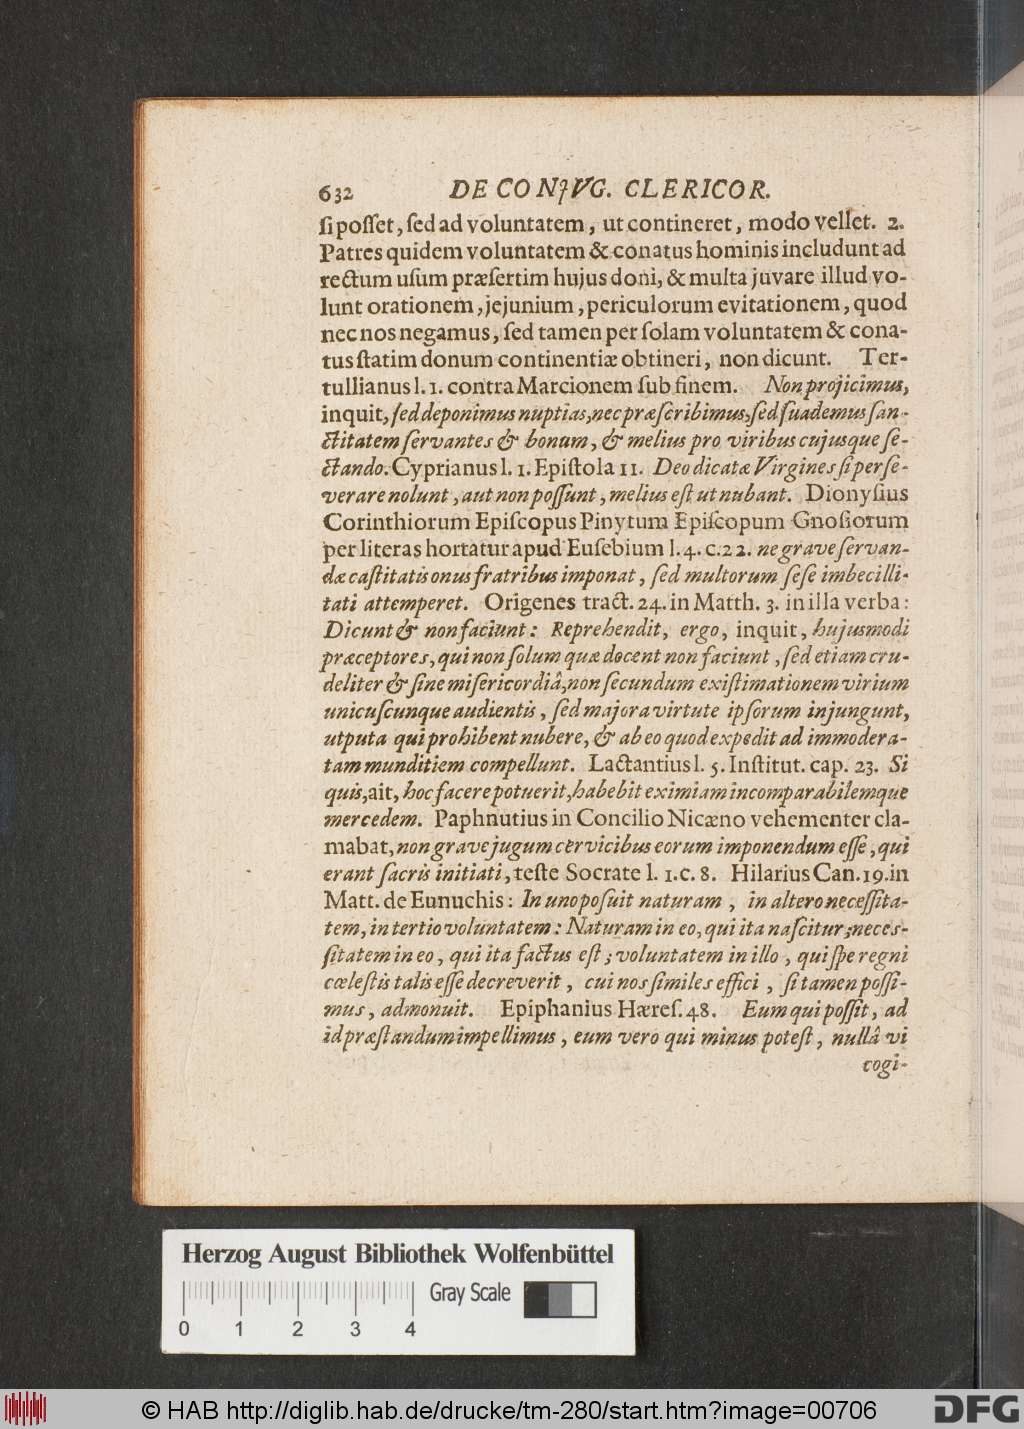 632 DE CONJVG. CLERICOR.
ſi poſſet, ſed ad voluntatem, ut contineret, modo vellet. 2.
Patres quidem voluntatem & conatus hominis includunt ad
rectum uſum præſertim hujus doni, & multa juvare illud vo-
lunt orationem, jejunium, periculorum evitationem, quod
nec nos negamus, ſed tamen per ſolam voluntatem & cona-
tus ſtatim donum continentiæ obtineri, non dicunt. Ter-
tullianus l. 1. contra Marcionem ſub finem. Non projicimus,
inquit, ſed deponimus nuptias, nec præſcribimus, ſed ſuademus ſan-
ctitatem ſervantes & bonum, & melius pro viribus cujusque ſe-
ctando. Cyprianus l. 1. Epiſtola 11. Deo dicatæ Virgines ſi perſe-
verare nolunt, aut non poſſunt, melius eſt ut nubant. Dionyſius
Corinthiorum Epiſcopus Pinytum Epiſcopum Gnoſiorum
per literas hortatur apud Euſebium l. 4. c. 22. ne grave ſervan-
dæ caſtitatis onus fratribus imponat, ſed multorum ſeſe imbecilli-
tati attemperet. Origenes tract. 24. in Matth. 3. in illa verba:
Dicunt & non faciunt: Reprehendit, ergo, inquit, hujusmodi
præceptores, qui non ſolum quæ docent non faciunt, ſed etiam cru-
deliter & ſine miſericordiâ, non ſecundum exiſtimationem virium
unicuſcunque audientis, ſed majora virtute ipſorum injungunt,
utputa qui prohibent nubere, & ab eo quod expedit ad immodera-
tam munditiem compellunt. Lactantius l. 5. Inſtitut. cap. 23. Si
quis, ait, hoc facere potuerit, habebit eximiam incomparabilemque
mercedem. Paphnutius in Concilio Nicæno vehementer cla-
mabat, non grave jugum cervicibus eorum imponendum eſſe, qui
erant ſacris initiati, teſte Socrate l. 1. c. 8. Hilarius Can. 19. in
Matt. de Eunuchis: In uno poſuit naturam, in altero neceſſita-
tem, in tertio voluntatem: Naturam in eo, qui ita naſcitur; neceſ-
ſitatem in eo, qui ita factus eſt; voluntatem in illo, qui ſpe regni
cœleſtis talis eſſe decreverit, cui nos ſimiles effici, ſi tamen poſſi-
mus, admonuit. Epiphanius Hæreſ. 48. Eum qui poſſit, ad
id præſtandum impellimus, eum vero qui minus poteſt, nullâ vi
cogi-
Herzog August Bibliothek Wolfenbüttel
Gray Scale
0 1 2 3 4
© HAB http://diglib.hab.de/drucke/tm-280/start.htm?image=00706
DFG